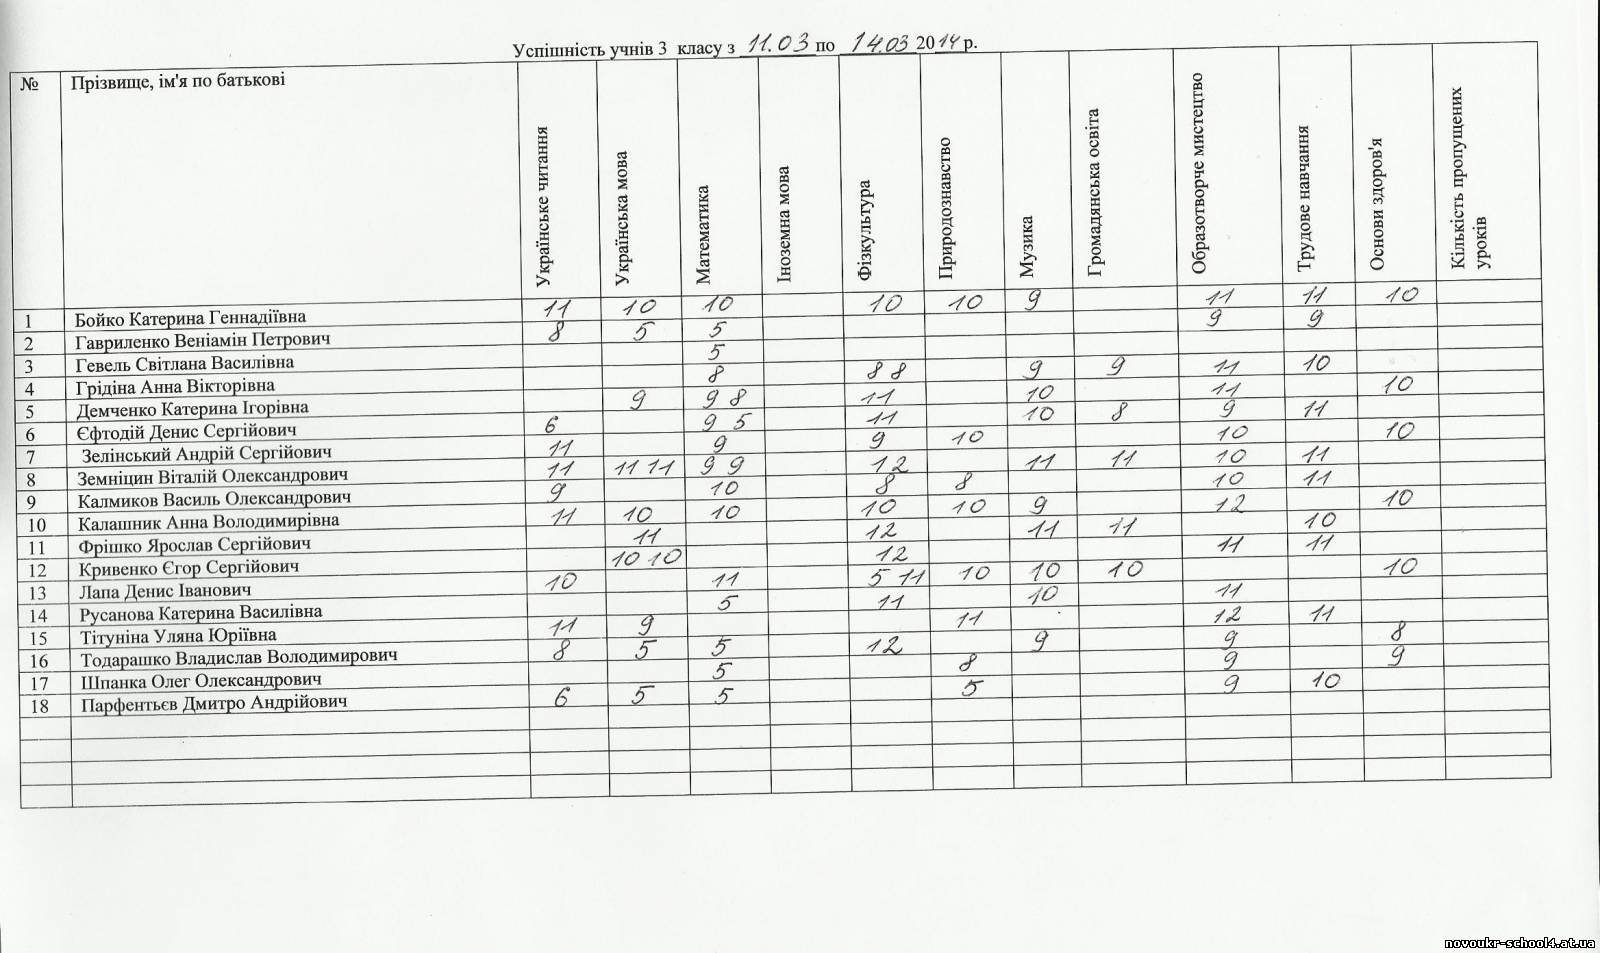 Успішність учнів 3 класу з 11.03 по 14.03 2014 р.
№ Прізвище, ім'я по батькові Українське читання Українська мова Математика Іноземна мова Фізкультура Природознавство Музика Громадянська освіта Образотворче мистецтво Трудове навчання Основи здоров'я Кількість пропущених уроків
1 Бойко Катерина Геннадіївна 11 10 10 10 10 9 11 11 10
2 Гавриленко Веніамін Петрович 8 5 5 9 9
3 Гевель Світлана Василівна 5
4 Грідіна Анна Вікторівна 8 8 8 9 9 11 10
5 Демченко Катерина Ігорівна 9 9 8 11 10 11 10
6 Єфтодій Денис Сергійович 6 9 5 11 10 8 9 11
7 Зелінський Андрій Сергійович 11 9 9 10 10 10
8 Земніцин Віталій Олександрович 11 11 11 9 9 12 11 11 10 11
9 Калмиков Василь Олександрович 9 10 8 8 10 11
10 Калашник Анна Володимирівна 11 10 10 10 10 9 12 10
11 Фрішко Ярослав Сергійович 11 12 11 11 10
12 Кривенко Єгор Сергійович 10 10 12 11 11
13 Лапа Денис Іванович 10 11 5 11 10 10 10 10
14 Русанова Катерина Василівна 5 11 10 11
15 Тітуніна Уляна Юріївна 11 9 11 12 11
16 Тодарашко Владислав Володимирович 8 5 5 12 9 9 8
17 Шпанка Олег Олександрович 5 8 9 9
18 Парфентьєв Дмитро Андрійович 6 5 5 5 9 10
novoukr-school4.at.ua